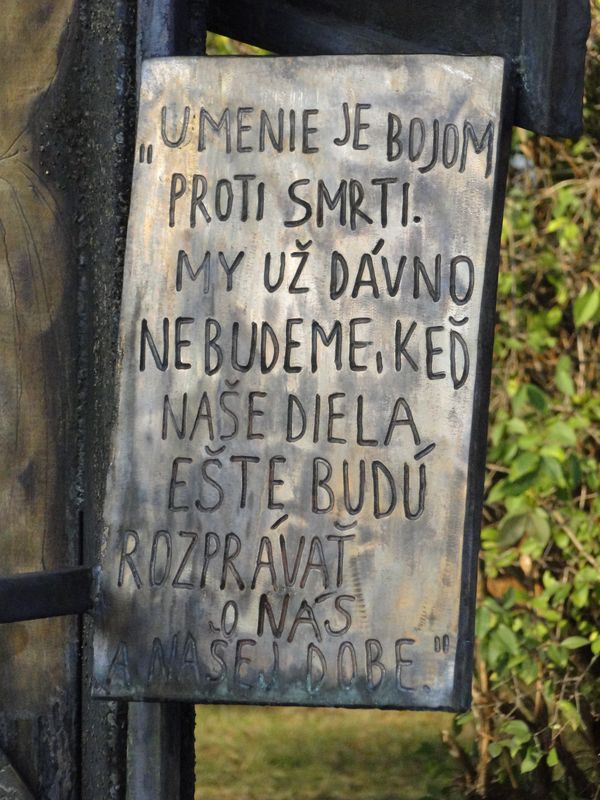 „UMENIE JE BOJOM
PROTI SMRTI.
MY UŽ DÁVNO
NEBUDEME, KEĎ
NAŠE DIELA
EŠTE BUDÚ
ROZPRÁVAŤ
O NÁS
A NAŠEJ DOBE."